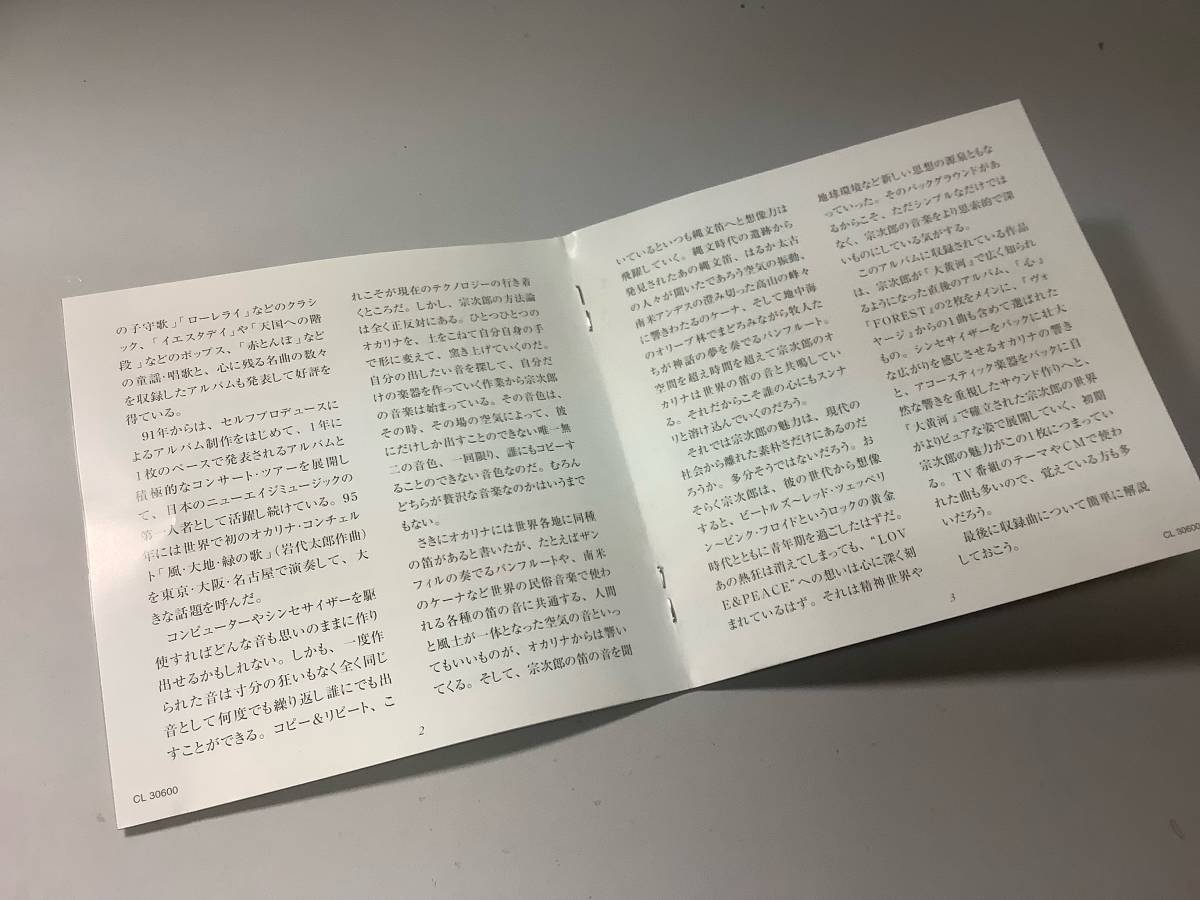 の子守歌」「ローレライ」などのクラシ
ック、「イエスタデイ」や「天国への階
段」などのポップス、「赤とんぼ」など
の童謡・唱歌と、心に残る名曲の数々
を収録したアルバムも発表して好評を
得ている。
91年からは、セルフプロデュースに
よるアルバム制作をはじめて、1年に
1枚のペースで発表されるアルバムと
積極的なコンサート・ツアーを展開し
て、日本のニューエイジミュージックの
第一人者として活躍し続けている。95
年には世界で初のオカリナ・コンチェル
ト「風・大地・緑の歌」(岩代太郎作曲)
を東京・大阪・名古屋で演奏して、大
きな話題を呼んだ。
コンピューターやシンセサイザーを駆
使すればどんな音も思いのままに作り
出せるかもしれない。しかも、一度作
られた音は寸分の狂いもなく全く同じ
音として何度でも繰り返し誰にでも出
すことができる。コピー&リピート、こ
れこそが現在のテクノロジーの行き着
くところだ。しかし、宗次郎の方法論
は全く正反対にある。ひとつひとつの
オカリナを、土をこねて自分自身の手
で形に変えて、窯き上げていくのだ。
自分の出したい音を探して、自分だ
けの楽器を作っていく作業から宗次郎
の音楽は始まっている。その音色は、
その時、その場の空気によって、彼
にだけしか出すことのできない唯一無
二の音色、一回限り、誰にもコピーす
ることのできない音色なのだ。むろん
どちらが贅沢な音楽なのかはいうまで
もない。
さきにオカリナには世界各地に同種
の笛があると書いたが、たとえばザン
フィルの奏でるパンフルートや、南米
のケーナなど世界の民俗音楽で使わ
れる各種の笛の音に共通する、人間
と風土が一体となった空気の音といっ
てもいいものが、オカリナからは響い
てくる。そして、宗次郎の笛の音を聞
2
CL 30600
いているといつも縄文笛へと想像力は
飛躍していく。縄文時代の遺跡から
発見されたあの縄文笛、はるか太古
の人々が聞いたであろう空気の振動、
南米アンデスの澄み切った高山の峰々
に響きわたるのケーナ、そして地中海
のオリーブ林でまどろみながら牧人た
ちが神話の夢を奏でるパンフルート。
空間を超え時間を超えて宗次郎のオ
カリナは世界の笛の音と共鳴してい
る。それだからこそ誰の心にもスンナ
リと溶け込んでいくのだろう。
それでは宗次郎の魅力は、現代の
社会から離れた素朴さだけにあるのだ
ろうか。多分そうではないだろう。お
そらく宗次郎は、彼の世代から想像
すると、ビートルズ〜レッド・ツェッペリ
ン〜ピンク・フロイドというロックの黄金
時代とともに青年期を過ごしたはずだ。
あの熱狂は消えてしまっても、“LOV
E&PEACE”への想いは心に深く刻
まれているはず。それは精神世界や
地球環境など新しい思想の源泉ともな
っていった。そのバックグラウンドがあ
るからこそ、ただシンプルなだけでは
なく、宗次郎の音楽をより思索的で深
いものにしている気がする。
このアルバムに収録されている作品
は、宗次郎が『大黄河』で広く知られ
るようになった直後のアルバム、『心』
『FOREST』の2枚をメインに、『ヴォ
ヤージ』からの1曲も含めて選ばれた
もの。シンセサイザーをバックに壮大
な広がりを感じさせるオカリナの響き
と、アコースティック楽器をバックに自
然な響きを重視したサウンド作りへと、
『大黄河』で確立された宗次郎の世界
がよりピュアな姿で展開していく、初期
宗次郎の魅力がこの1枚につまってい
る。TV番組のテーマやCMで使わ
れた曲も多いので、覚えている方も多
いだろう。
最後に収録曲について簡単に解説
しておこう。
3
CL 30600